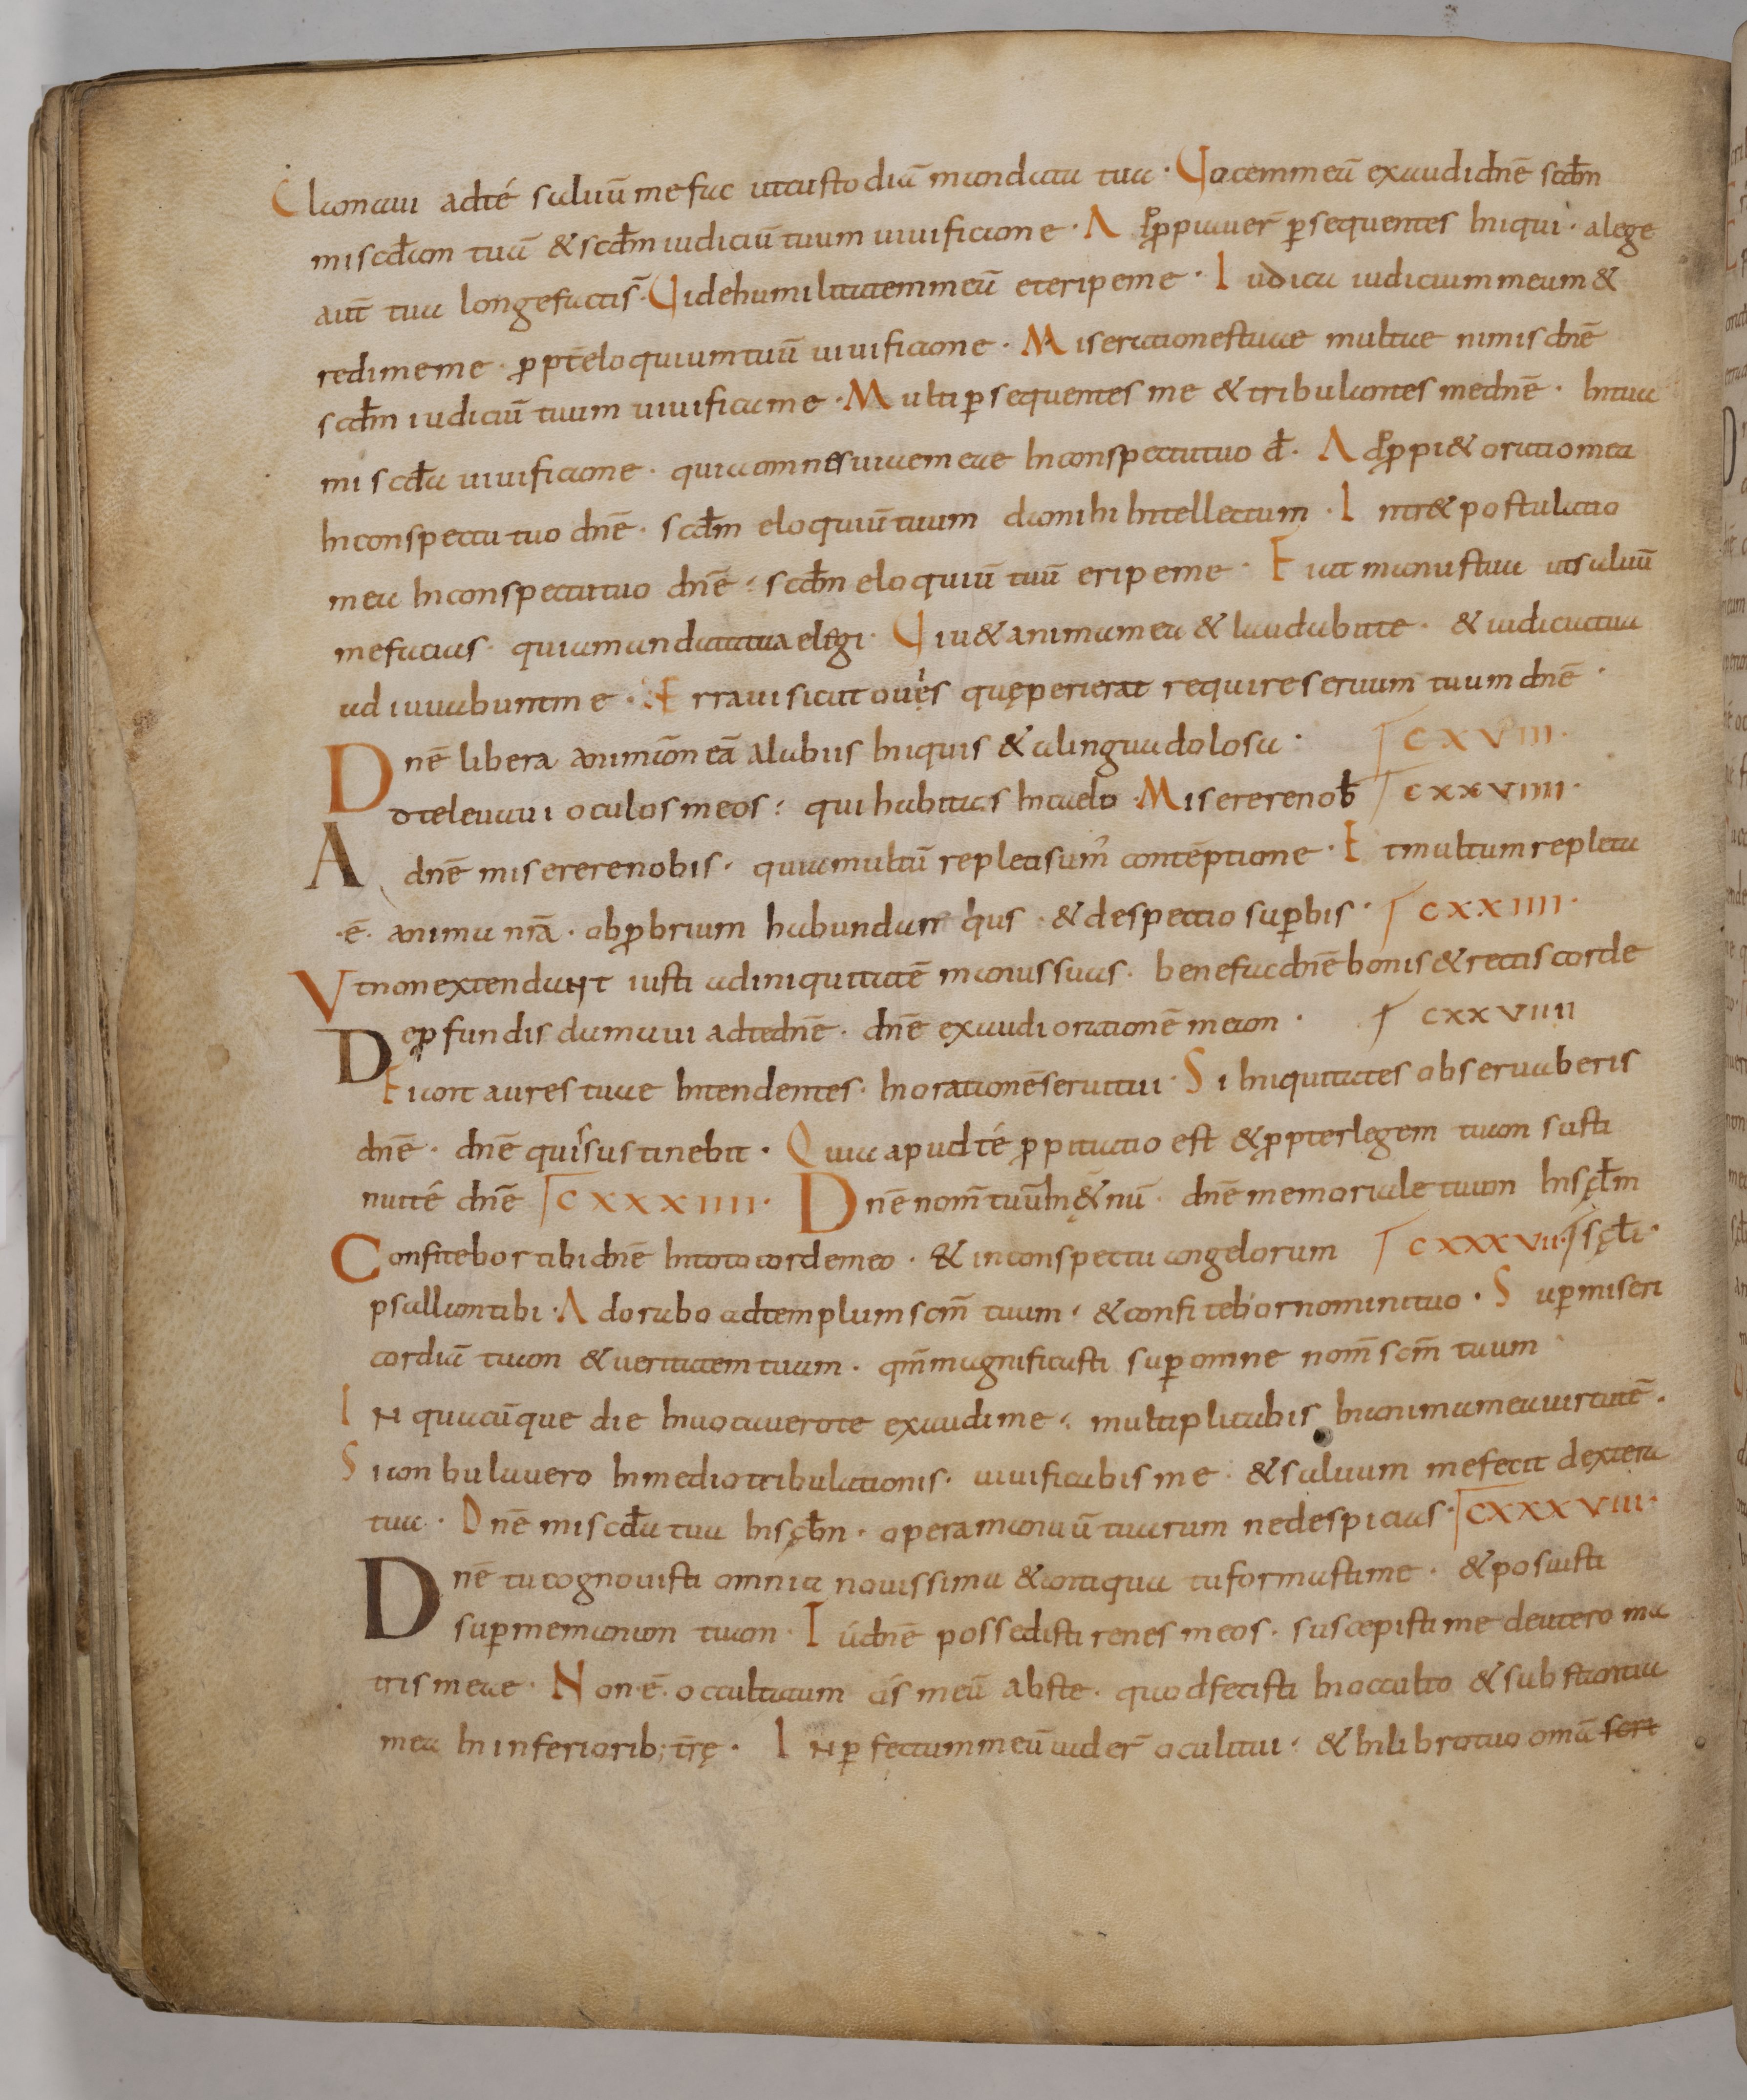 Clamaui adté saluū mefac utcustodiā mandata tua · Uocemmeā exaudidnē scdm̄
miscdam̄ tuā & scdm̄ iudiciū tuum uiuificame · Appuauer̄ psequentes Iniqui · alege
aut̄ tua longefactis̄ · Uidehumilitatemmeā eteripeme · Iudica iudiciummeum &
redimeme · pp̄t eloquiumtuū uiuificame · Miserationestuae multae nimis dnē
scdm̄ iudiciū tuum uiuificame · Multi psequentes me & tribulantes mednē · Intua
miscda̅ uiuificame · quiaomnesuiaemeae Inconspectutuo d̄ · Adppi& oratiomea
Inconspectu tuo dnē · scdm̄ eloquiūtuum damihi Intellectum · Intr& postulatio
mea Inconspectutuo dnē · scdm̄ eloquiū tuū eripeme · Fiat manustua utsaluū
mefacias · quiamandatatua elegi · Uiu& animamea & laudabitte · & iudiciatua
adiuuabuntme · Erraui sicut ouęs quęperierat requireseruum tuumdnē ·
Dnē libera animāmeā alabiis Iniquis & alinguadolosa · CXVIIII ·
Adteleuaui oculosmeos : qui habitas Incaelo · Misererenob̄ CXXVIIII ·
dnē misererenobis · quiamultū repletisum̄ contēptione · Etmultumrepleta
· ē · anima nr̄a · obprobrium habundantibus · & despectio supbis · CXXIIII ·
Utnonextendant iusti adiniquitatē manussuas · benefacdnē bonis & rectis corde
Depfundis clamaui adtednē · dnē exaudiorationē meam · CXXVIIII
Fiant aures tuae Intendentes · Inorationēseruitui · Si Iniquitates obseruaberis
dnē · dnē quis sustinebit · Quia apudté ppitiatio est & ppterlegem tuam susti
nuitē dnē CXXXIIII · Dnē nom̄ tuū In ę&nū · dnē memoriale tuum Insęclm̄
Confitebor tibi dnē Intoto cordemeo · & inconspectu angelorum CXXXVII · sęcli ·
psallamtibi · Adorabo adtemplum scm̄ tuum · & confitebornominituo · Supmiseri
cordiā tuam & ueritatem tuam · qm̄magnificasti supomne nom̄ scm̄ tuum
INquacūque die Inuocauerote exaudime · multiplicabis Inanimameauirtutē ·
Siambulauero Inmediotribulationis · uiuificabisme · & saluum mefecit dextera
tua · Dnē miscda̅ tua Insęclm̄ · operamanuū tuarum nedespicias · CXXXVIII ·
Dnē tucognouisti omnia nouissima & antiqua tuformastime · & posuisti
supmemanum tuam · Túdnē possedisti renes meos · suscepistime deutero ma
tris meae · Non · ē · occultatum ós meū abste · quodfecisti Inocculto & substantia
mea In inferiorib; tr̄ę · INpfectummeūuider̄ oculitui · & Inlibrotuo om̄s scri